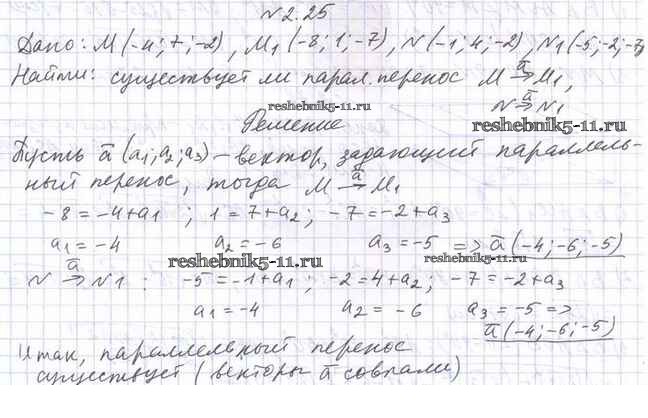 №2.25
Дано: M(-4; 7; -2), M₁(-8; 1; -7), N(-1; 4; -2), N₁(-5; -2; -7)
Найти: существует ли парал. перенос M →ā M₁,
N →ā N₁
reshebnik5-11.ru
Решение
reshebnik5-11.ru
Пусть ā(a₁; a₂; a₃) – вектор, задающий параллель-
ный перенос, тогда M →ā M₁
-8 = -4 + a₁ ; 1 = 7 + a₂ ; -7 = -2 + a₃
a₁ = -4 a₂ = -6 a₃ = -5 => ā(-4; -6; -5)
reshebnik5-11.ru
N →ā N₁ : -5 = -1 + a₁ ; -2 = 4 + a₂ ; -7 = -2 + a₃
a₁ = -4 a₂ = -6 a₃ = -5 =>
ā(-4; -6; -5)
Итак, параллельный перенос
существует (векторы ā совпали)